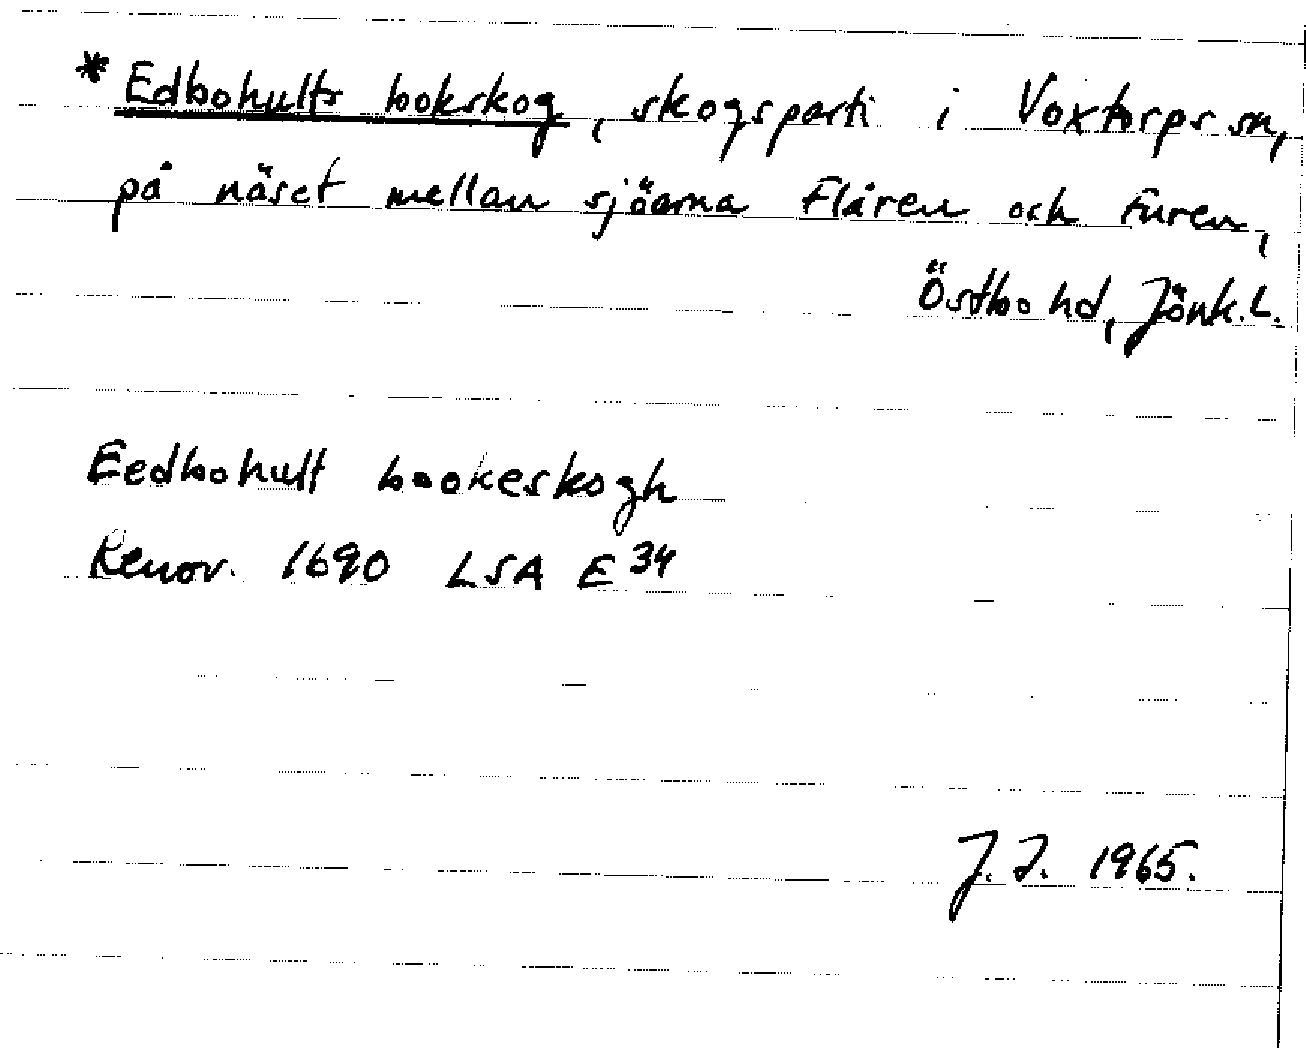 * Edbohults bokskog, skogsparti i Voxtorps sn,
på näset mellan sjöarna Flåren och Furen,
Östbo hd, Jönk. L.
Eedbohult bookeskogh
Renov. 1690 LSA E 34
J. I. 1965.